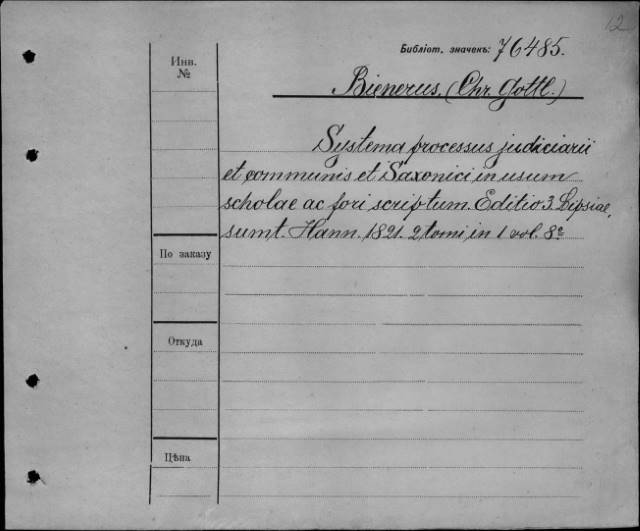 12
Библіот. значекъ: 76485.
Инв.
№
Bienerus, (Chr. Gottl.)
Systema processus judiciarii
et communis et Saxonici in usum
scholae ac fori scriptum. Editio 3. Lipsiae,
sumt. Hann. 1821. 2 tomi in 1 vol. 8º
По заказу
Откуда
Цѣна